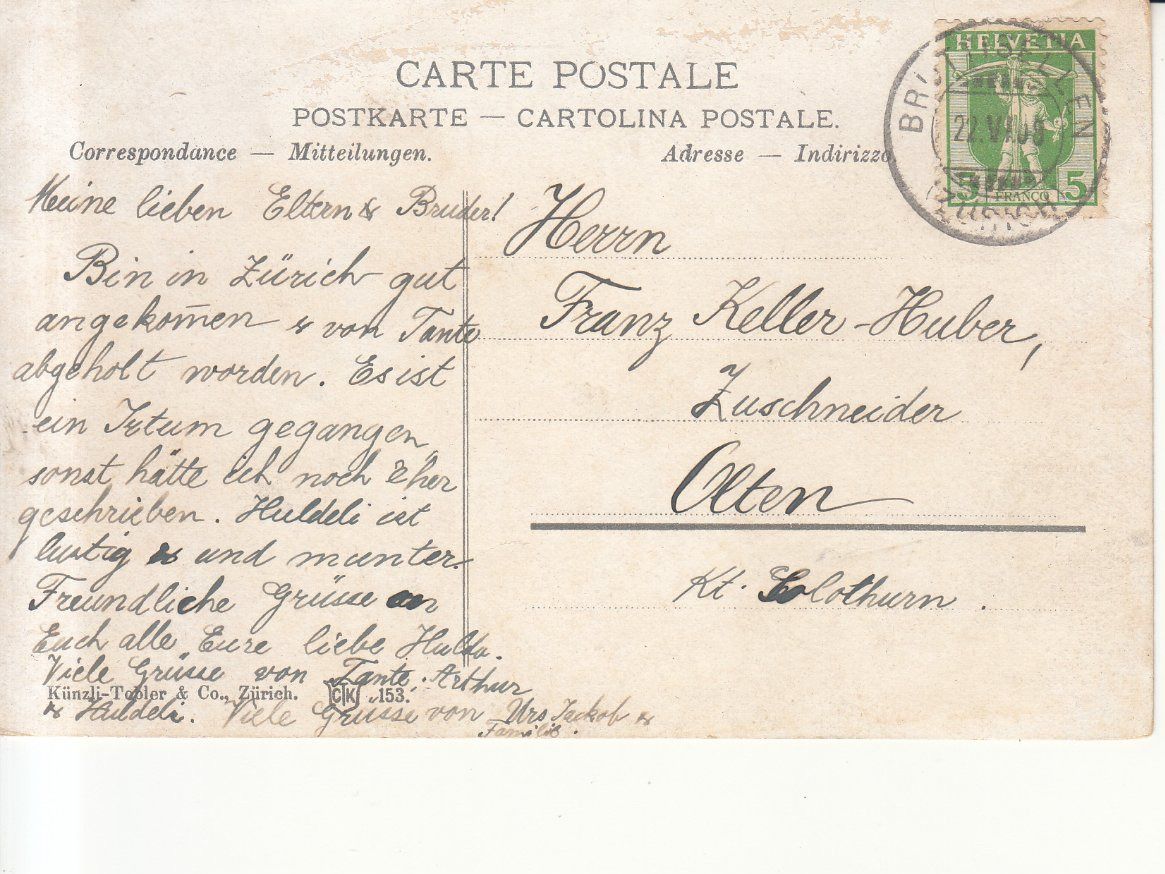 CARTE POSTALE
POSTKARTE — CARTOLINA POSTALE.
Correspondance — Mitteilungen.
Adresse — Indirizzo
HELVETIA
5 FRANCO 5
BRÜTTISELLEN
(ZÜRICH)
Meine lieben Eltern & Bruder!
Bin in Zürich gut
angekom̄en & von Tante
abgeholt worden. Es ist
ein Irtum gegangen,
sonst hätte ich noch eher
geschrieben. Huldeli ist
lustig & und munter.
Freundliche Grüsse an
Euch alle Eure liebe Hulda.
Viele Grüsse von Tante, Arthur
& Huldeli. Viele Grüsse von Urs Jackob &
Familie.
Künzli-Tobler & Co., Zürich. CK 153.
Herrn
Franz Keller-Huber,
Zuschneider
Olten
Kt. Solothurn.